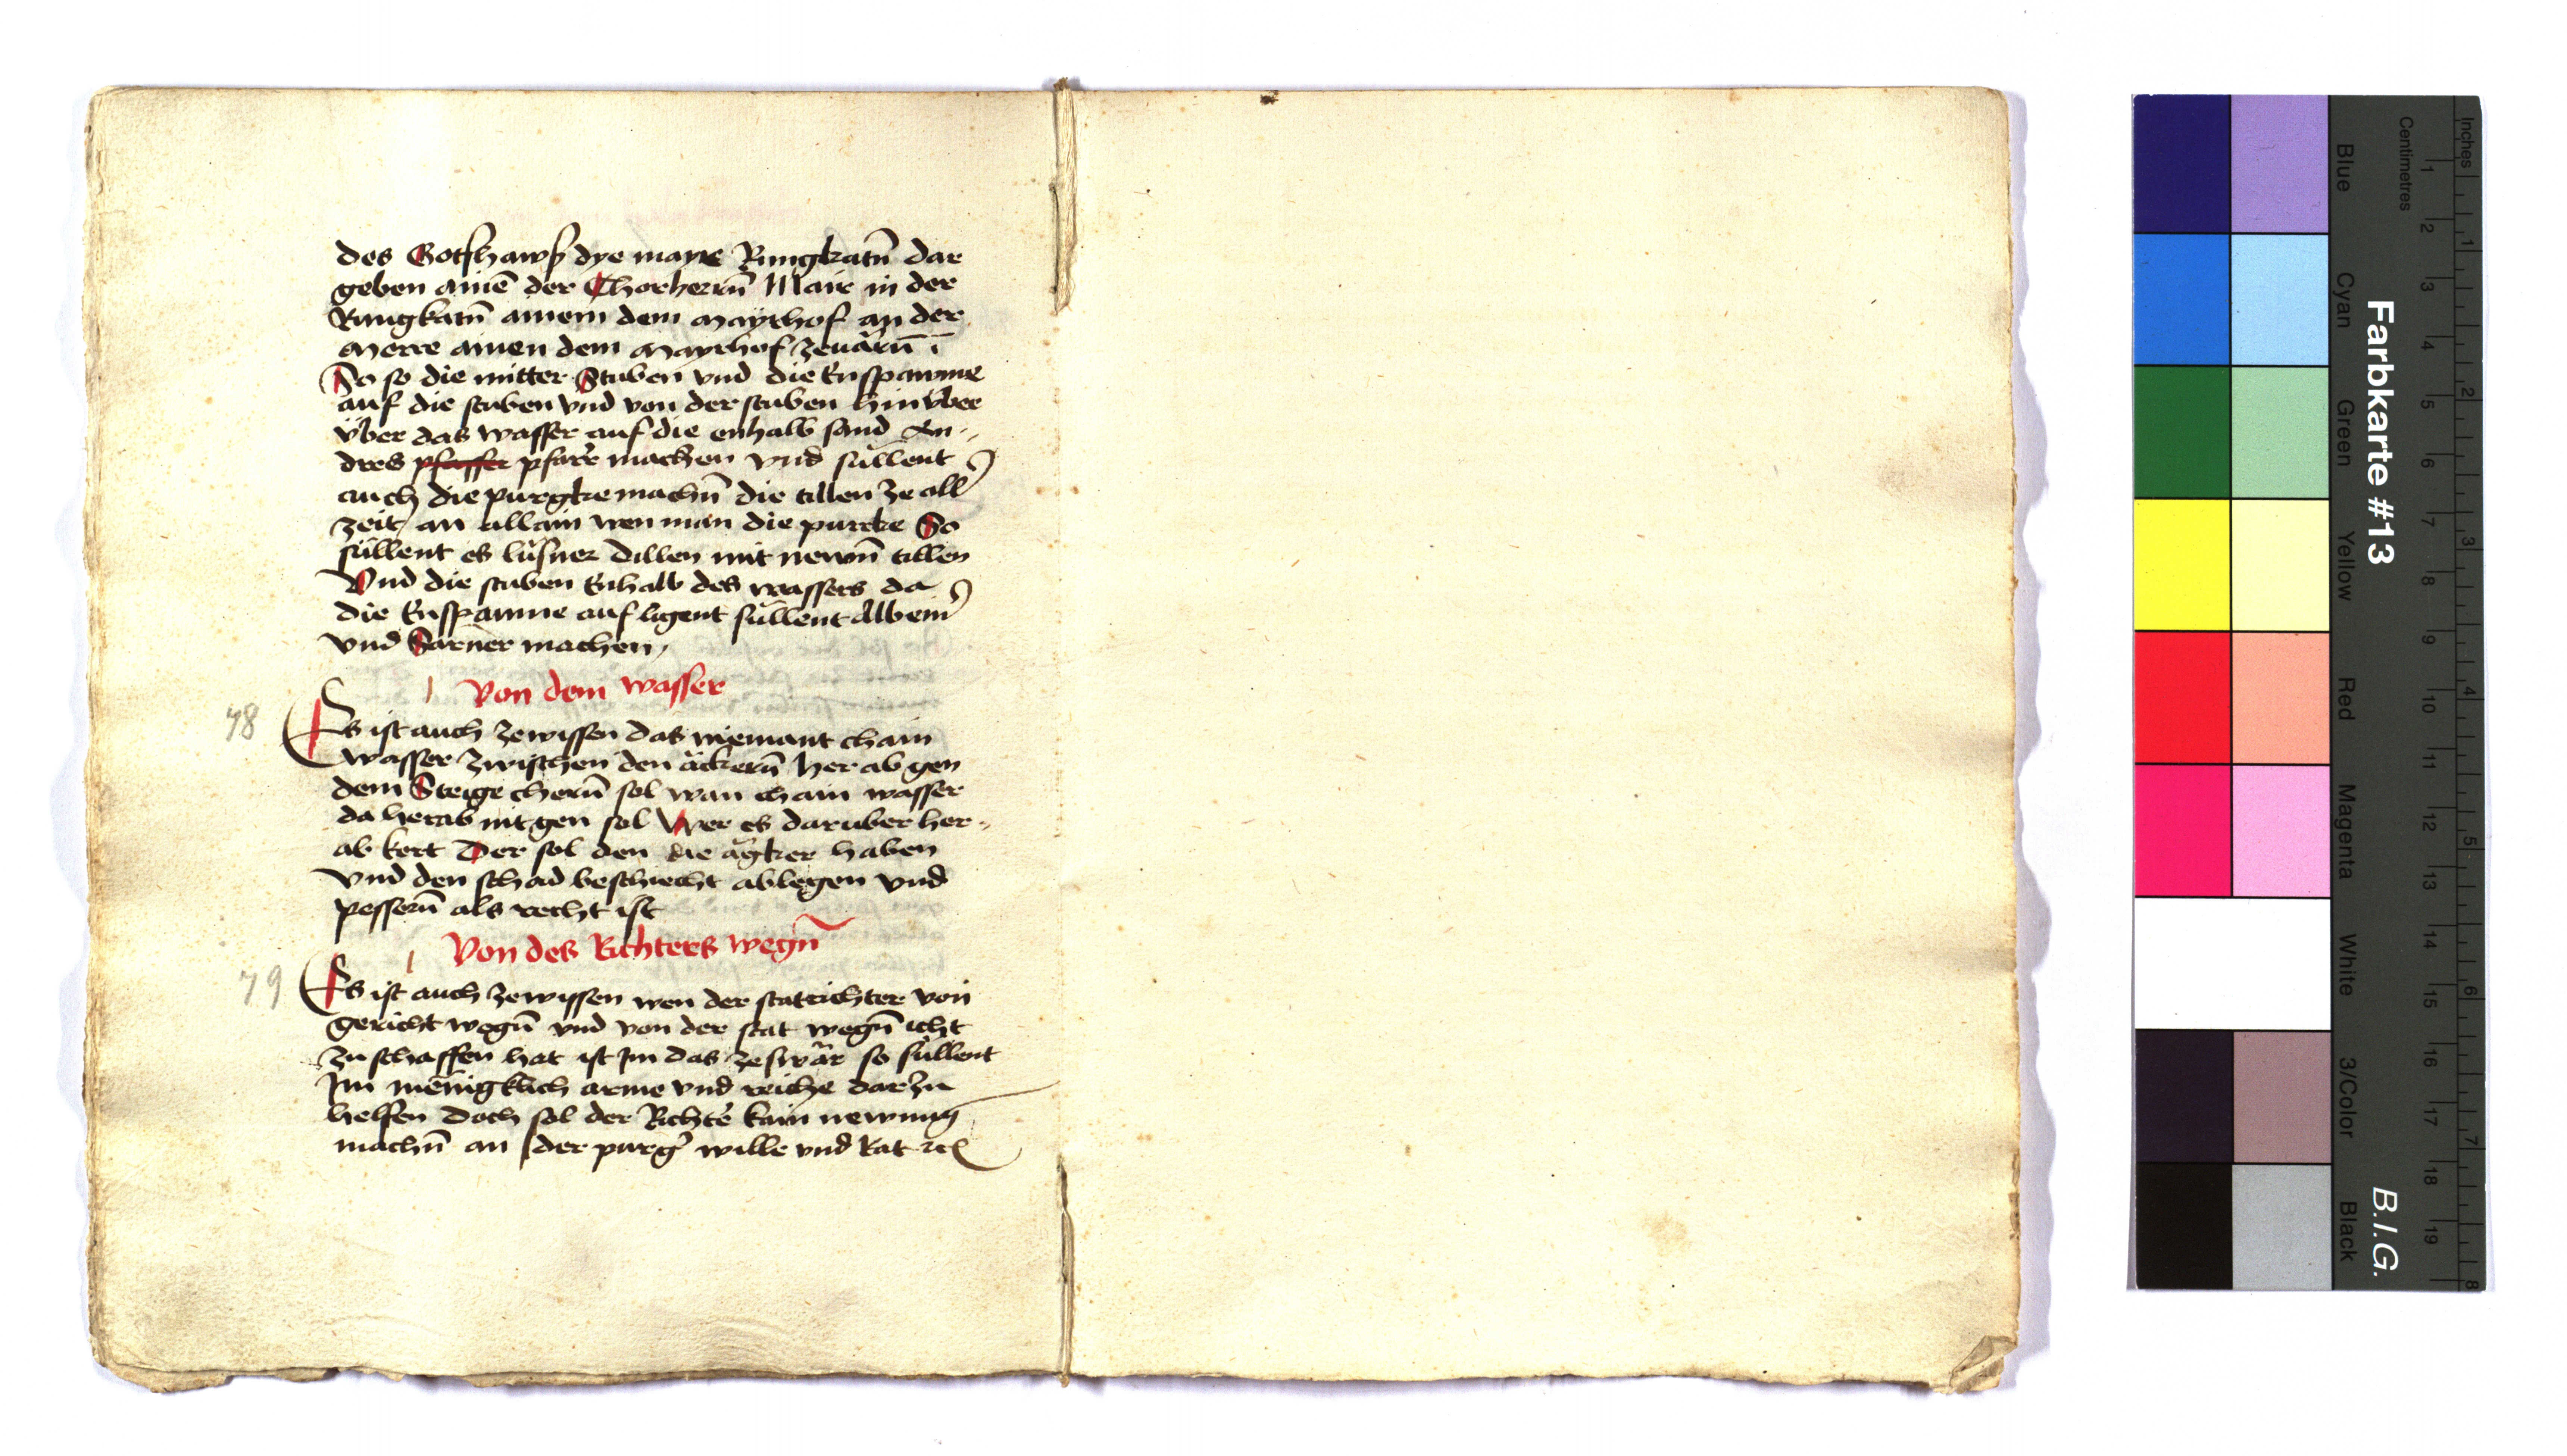 des Gotzhawß dye mayre Rungkatn̄ dar
geben ainē der Chorherrn̄ Mair in der
Rungkatn̄ ainem dem Mayrhof an der
Merre ainen dem Mayrhof zeuarn̄
So so die mitter Stuben vnd die Enspawme
auf die stuben vnd von der stuben hinvber
vber das wasser auf die enhalb sand An-
dres pfaffer pfarr machen vnd süllent
auch die purgke machn̄ die tillen ze all
zeit an allain wen man die purcke So
süllent es lüsner dillen mit newn̄ tillen
Vnd die stuben Enhalb des wassers da
die Enspawme auf ligent süllent Albein
vnd Sarner machen
Von dem wasser
78
Es ist auch zewissen das niemant chain
wasser zwischen den äckern̄ her ab gen
dem Steige chern̄ sol wan chain wasser
da herab nit gen sol Wer es daruber her-
ab kert Der sol den die ägker haben
vnd den schad beschiecht ablegen vnd
pessern̄ als recht ist
Von des Richters wegn̄
79
Es ist auch zewissen wen der statrichter von
gericht wegn̄ vnd von der stat wegn̄ icht
zu schaffen hat ist Im das ze swär so süllent
Im menigklich arme vnd reiche darzu
helfen Doch sol der Richter kain newung
machn̄ an der purg' wille vnd Rat etc
Farbkarte #13
B.I.G.
Inches
Centimetres
1 2 3 4 5 6 7 8 9 10 11 12 13 14 15 16 17 18 19
1 2 3 4 5 6 7 8
Blue
Cyan
Green
Yellow
Red
Magenta
White
3/Color
Black